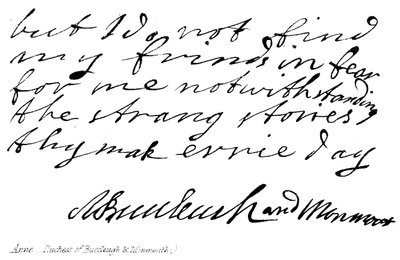 but I do not find
my frinds in fear
for me notwithstanding
the strang stories
thy mak evrie day
ABuccleuch and Monmoth
Anne Duchess of Buccleugh & Monmouth.)